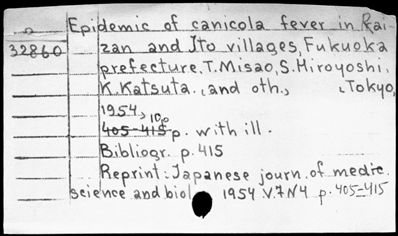 Epidemic of canicola fever in Rai-
32860 zan and Ito villages, Fukuoka
prefecture. T. Misao, S. Hiroyoshi,
K. Katsuta. (and oth., (Tokyo,
1954, 10,
405-415 p. with ill.
Bibliogr. p. 415
Reprint: Japanese journ. of medic.
science and biol 1954 .V.7 N4 p. 405-415